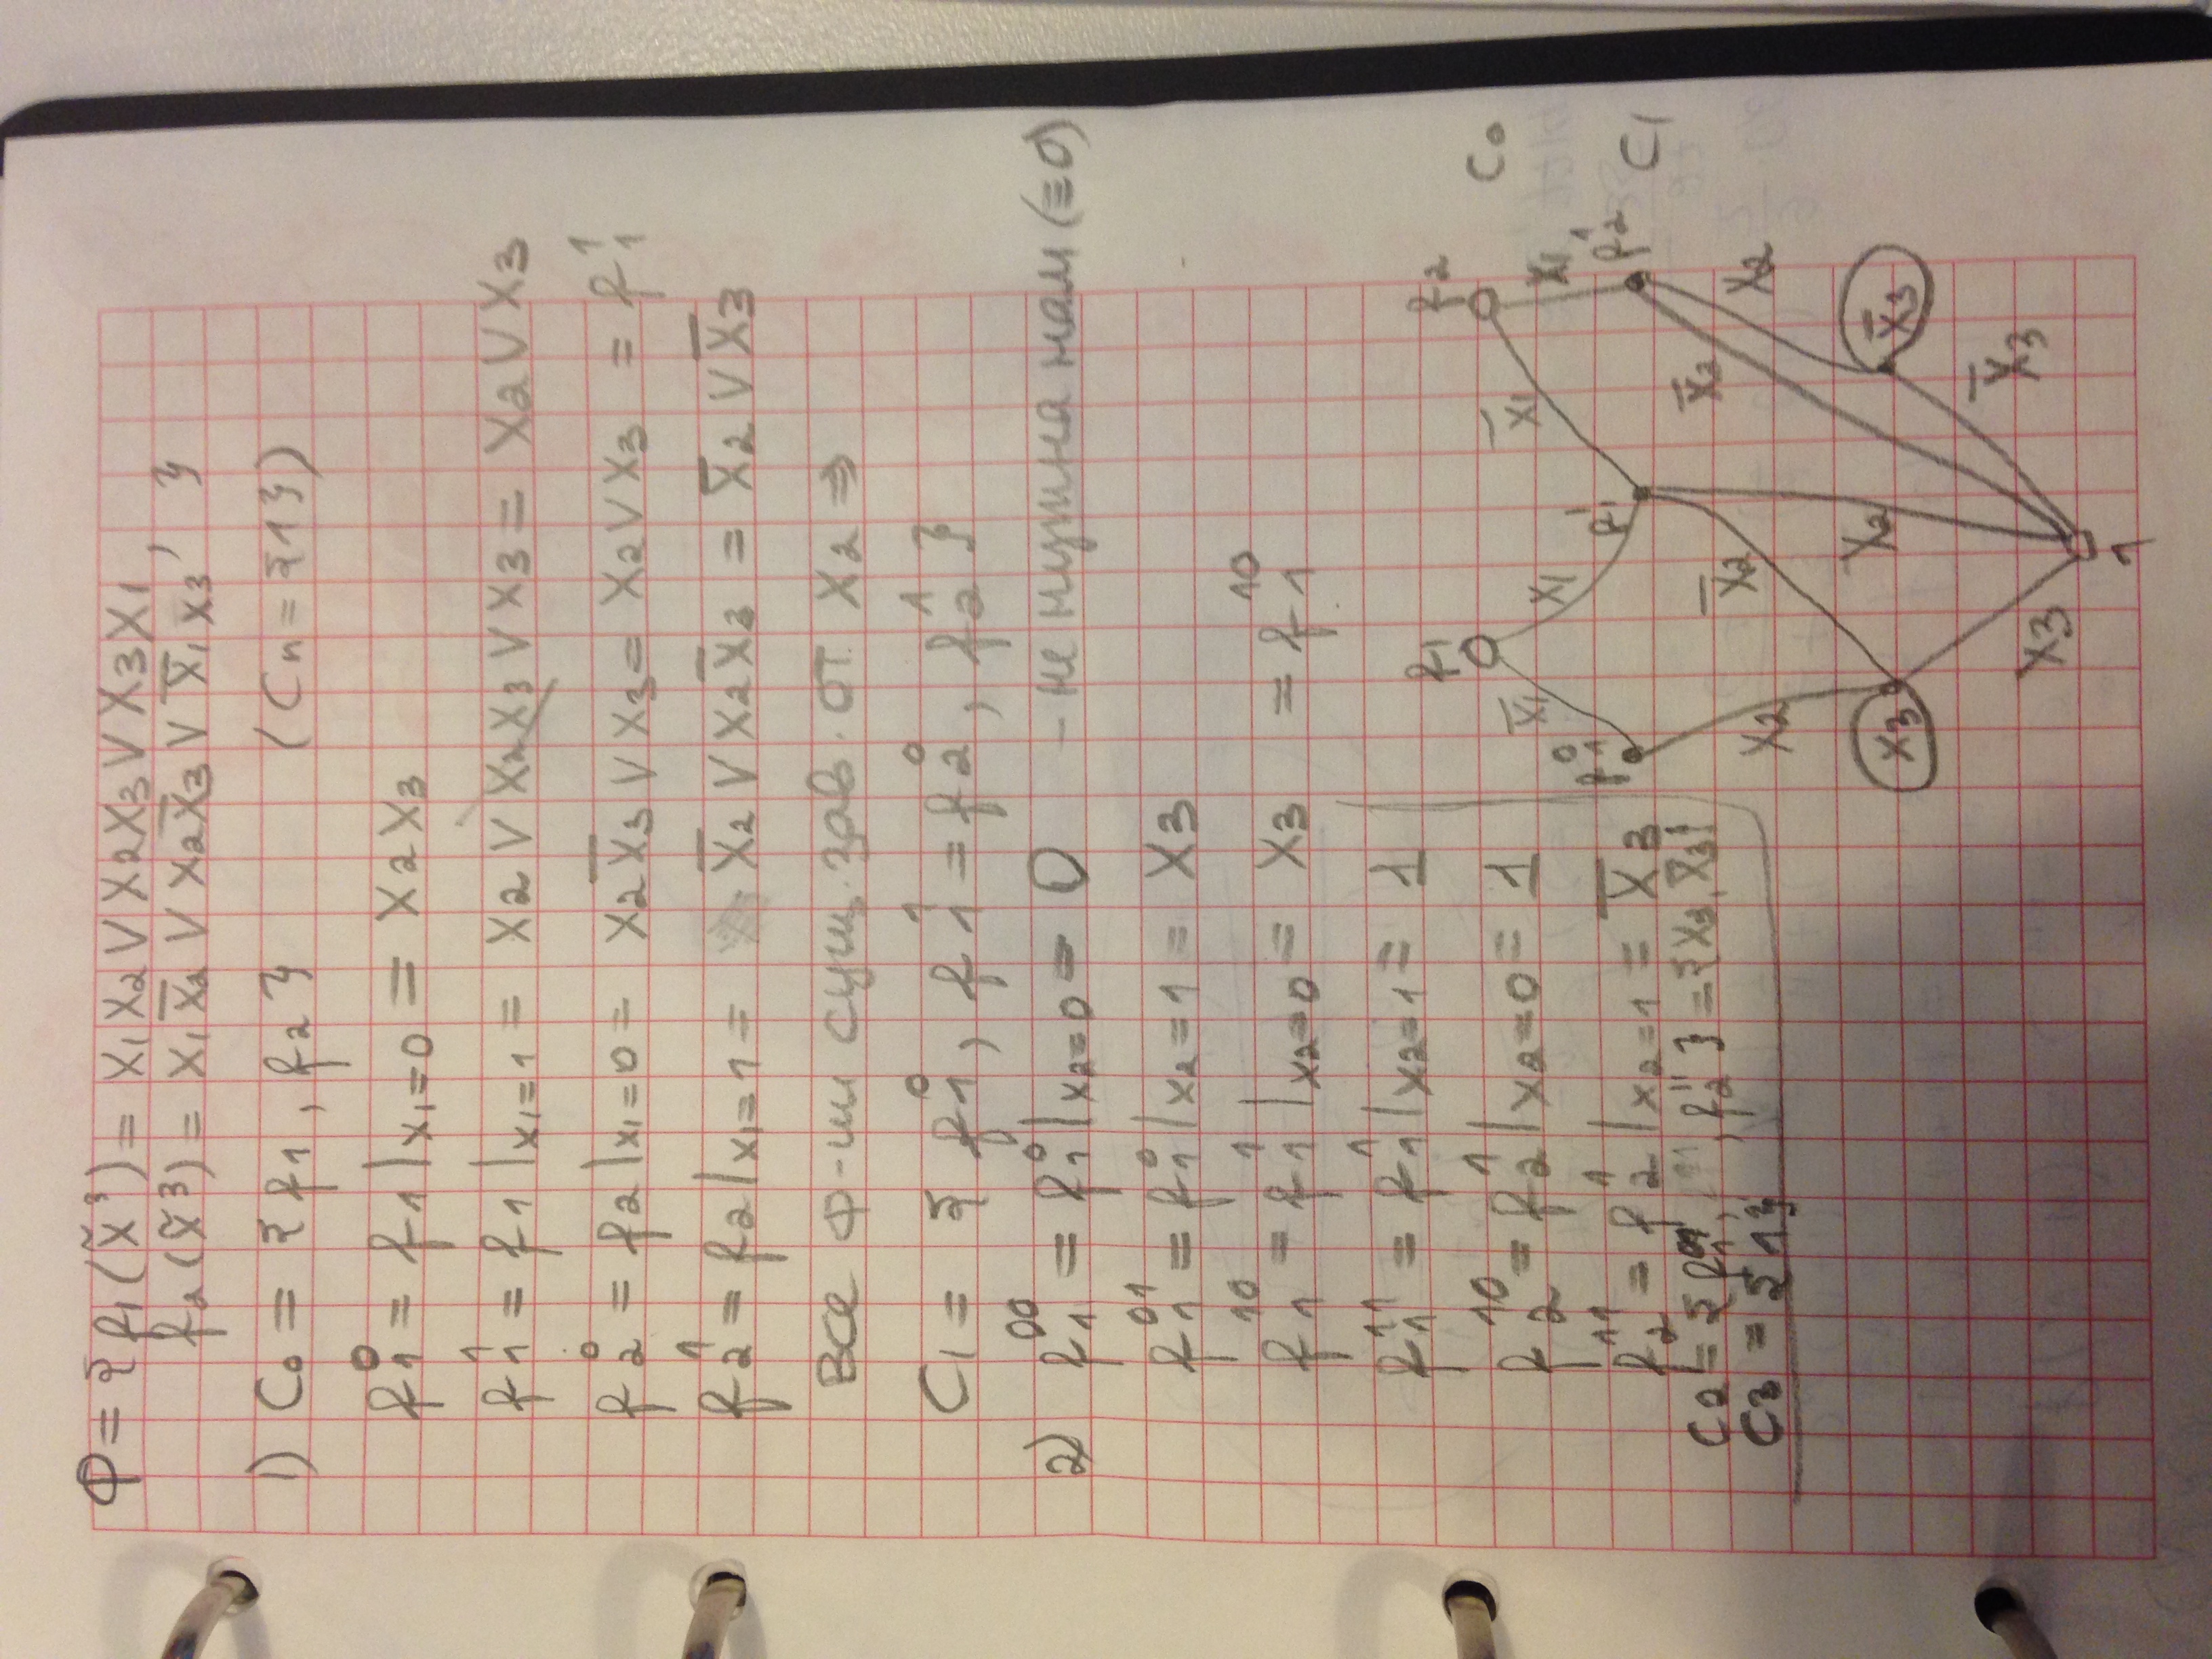 Φ = { f₁(x̃³) = x₁x₂ ∨ x₂x₃ ∨ x₃x₁,
f₂(x̃³) = x₁x̄₂ ∨ x₂x̄₃ ∨ x̄₁x₃, }
1) C₀ = {f₁, f₂} (Cₙ = {1})
f₁⁰ = f₁|x₁=0 = x₂x₃
f₁¹ = f₁|x₁=1 = x₂ ∨ x₂x₃ ∨ x₃ = x₂ ∨ x₃
f₂⁰ = f₂|x₁=0 = x₂x̄₃ ∨ x₃ = x₂ ∨ x₃ = f₁¹
f₂¹ = f₂|x₁=1 = x̄₂ ∨ x₂x̄₃ = x̄₂ ∨ x̄₃
Все ф-ии сущ. зав. от x₂ ⇒
C₁ = { f₁⁰, f₁¹ = f₂⁰, f₂¹ }
2) f₁⁰⁰ = f₁⁰|x₂=0 = 0 - не нужна нам (≡0)
f₁⁰¹ = f₁⁰|x₂=1 = x₃
f₁¹⁰ = f₁¹|x₂=0 = x₃ = f₁¹⁰
f₁¹¹ = f₁¹|x₂=1 = 1
f₂¹⁰ = f₂¹|x₂=0 = 1
f₂¹¹ = f₂¹|x₂=1 = x̄₃
C₂ = {f₁⁰¹, f₂¹¹} = {x₃, x̄₃}
C₃ = {1}
f₁ f₂ C₀
x̄₁ x₁ x̄₁ x₁
f₁⁰ f₁¹ f₂¹ C₁
x₂ x̄₂ x₂ x̄₂ x₂
x₃ x̄₃
x₃ x̄₃
1